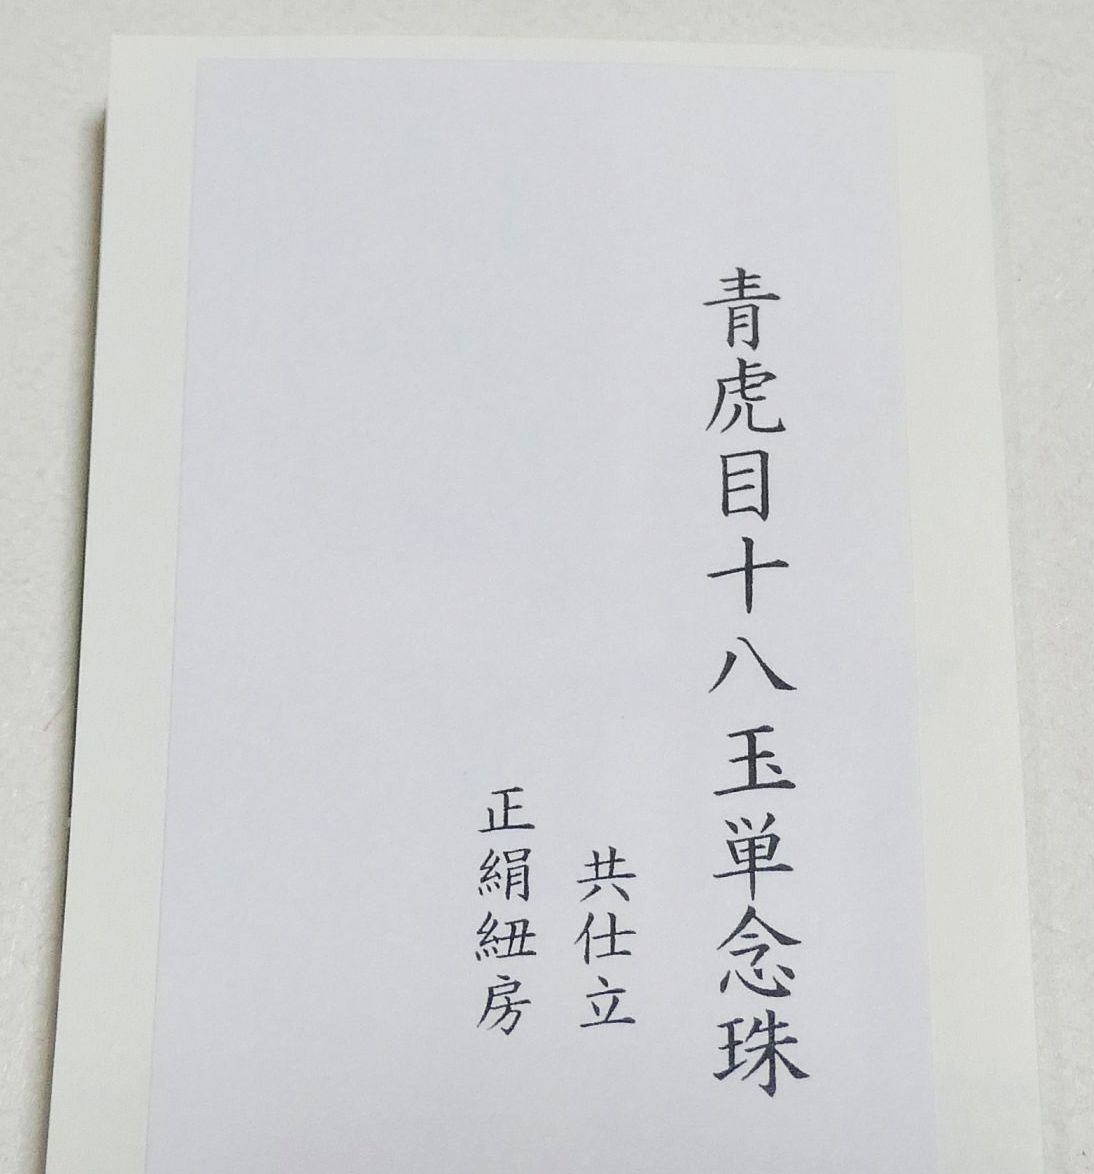 青虎目十八玉単念珠
共仕立
正絹紐房